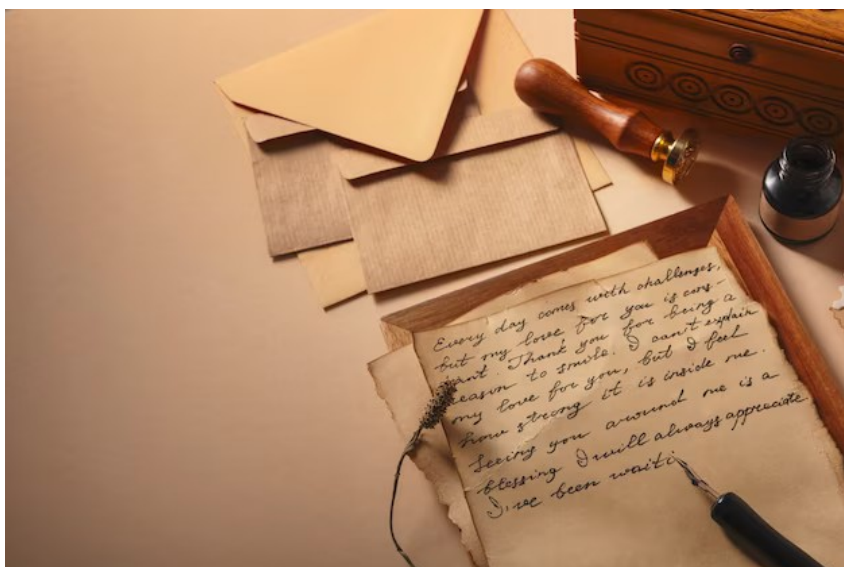 Every day comes with challenges,
but my love for you is cons-
tant. Thank you for being a
reason to smile. I can't explain
my love for you, but I feel
how strong it is inside me.
Seeing you around me is a
blessing I will always appreciate
I've been waiti